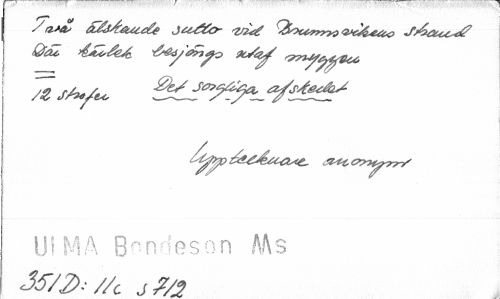 Två älskande sutto vid Brunnsvikens strand
Där kärlek besjöngs utaf myggen
=
12 strofer Det sorgliga afskedet
Upptecknare anonym
ULMA Bondeson Ms
351D: 11c s 712